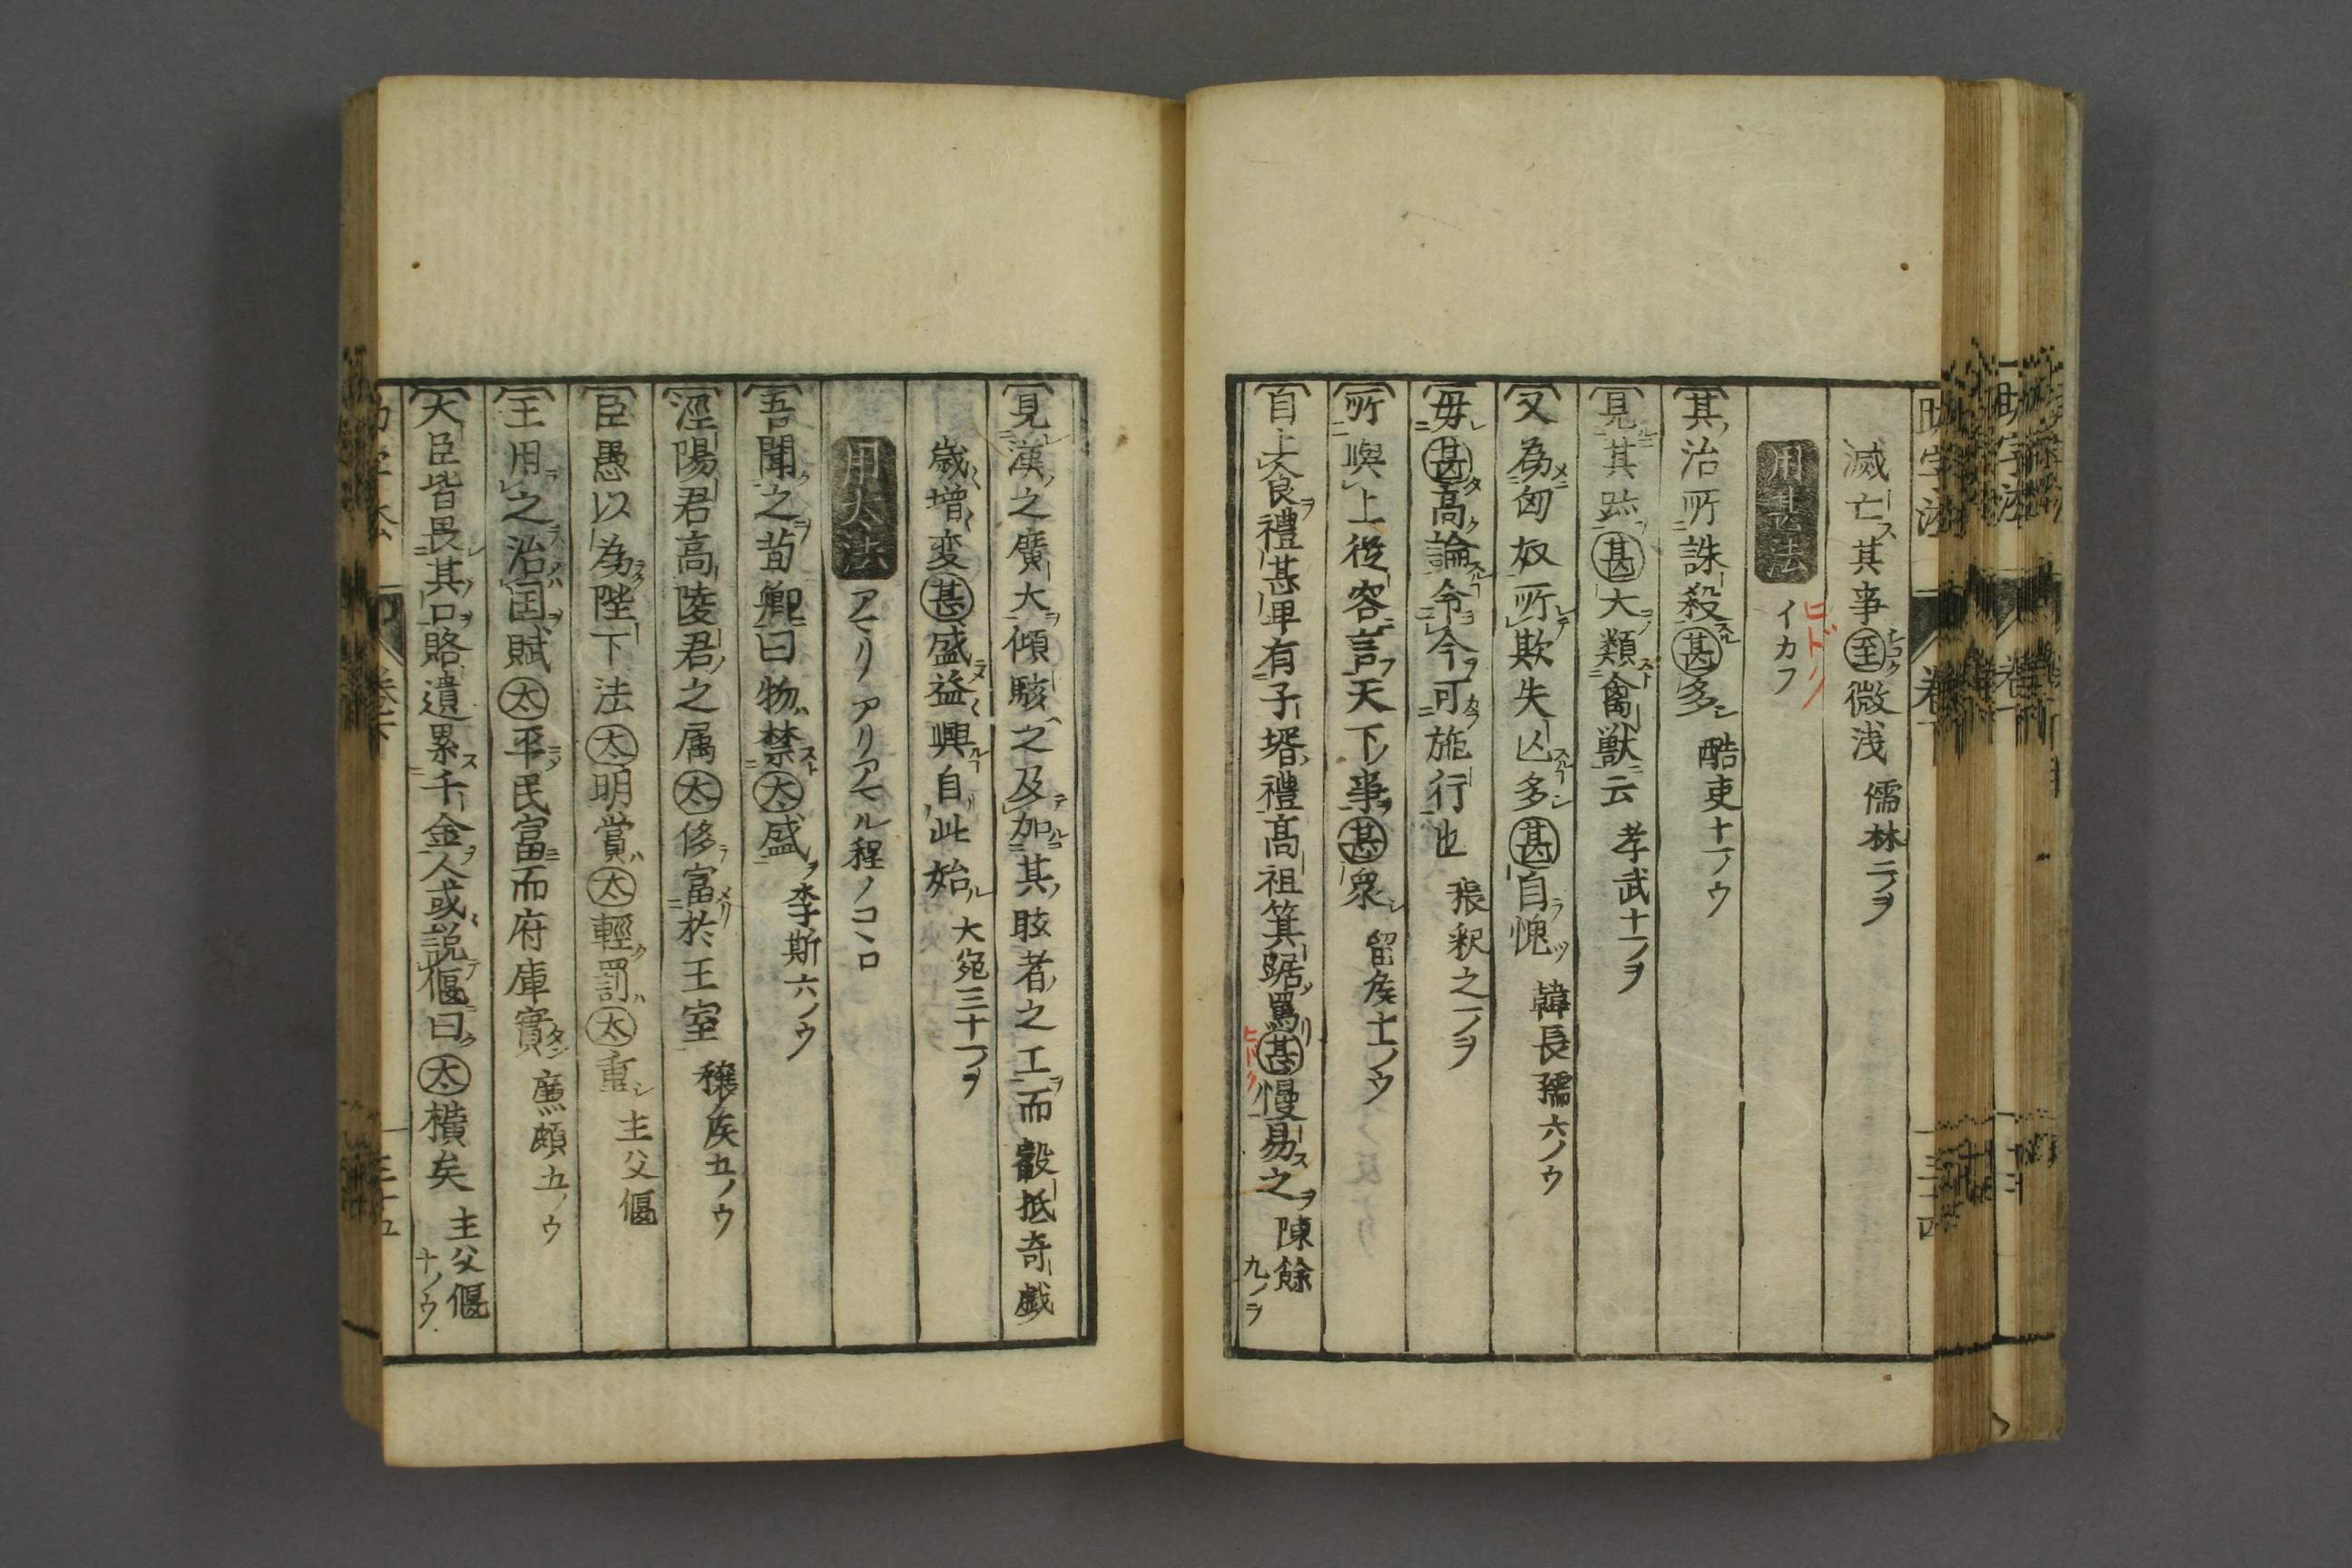 滅亡其事至微浅　儒林二ノヲ
用甚法　イカフ　ヒドク
其治所誅殺甚多　酷吏十一ノウ
見其跡甚大類禽獣云　孝武十一ノヲ
又為匈奴所欺失亾多甚自愧　韓長孺六ノウ
毋甚高論令今可施行也　張釈之一ノヲ
所與上從容言天下事甚衆　留矦十一ノウ
自上食禮甚卑有子壻禮高祖箕踞罵甚慢易之　陳餘九ノヲ
見漢之廣大傾駭之及加其眩者之工而觳抵奇戯
歳増変甚盛益興自此始　大宛三十一ノヲ
用太法　アマリ　アリアマル程ノコヽロ
吾聞之荀卿曰物禁太盛　李斯六ノウ
涇陽君高陵君之属太侈富於王室　穰矦五ノウ
臣愚以為陛下法太明賞太輕罰太重　主父偃
王用之治国賦太平民富而府庫實　廉頗五ノウ
大臣皆畏其口賂遺累千金人或説偃曰太横矣　主父偃十ノウ